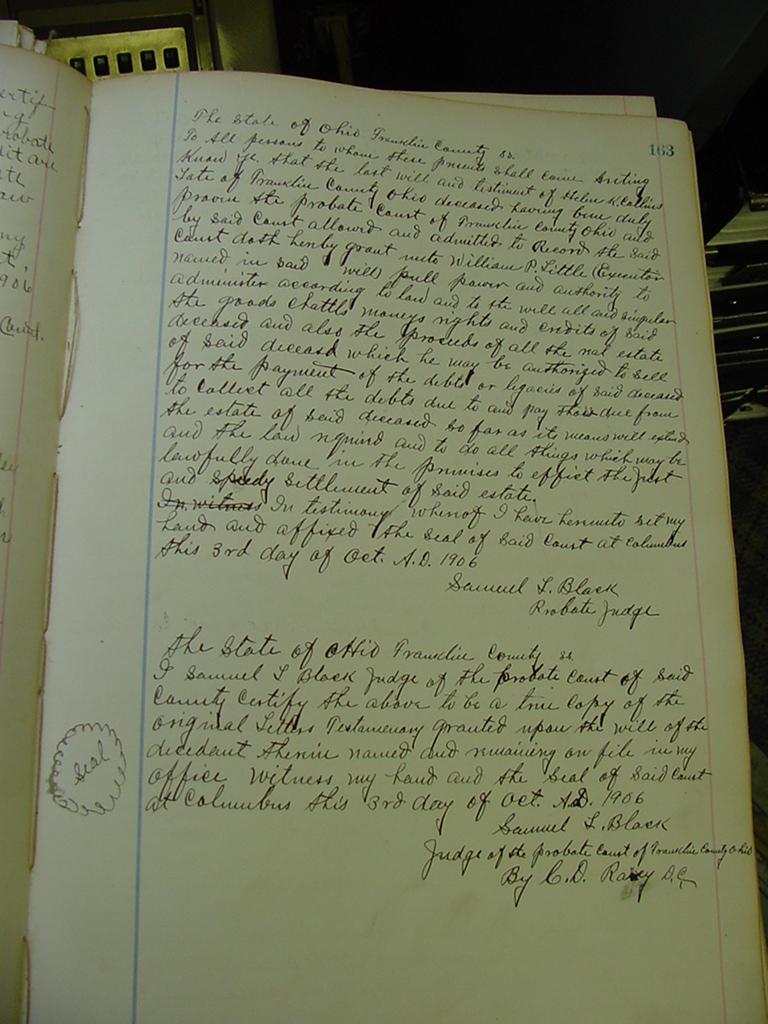 ertif
robate
dit are
906
Court.
163
The State of Ohio Franklin County ss.
To All persons to whom these presents shall come Greeting
Know ye that the last will and testiment of Helen K. Collins
late of Franklin County Ohio deceased having been duly
proven the probate Court of Franklin County Ohio and
by said Court allowed and admitted to Record the said
Court doth herby grant unto William P. Little (Executor
named in said will) full power and authority to
administer according to law and to the will all and singular
the goods chattls moneys rights and credits of said
deceased and also the proseeds of all the real estate
of said deceasd which he may be authorized to sell
for the payment of the debts or legacies of said deceased
to collect all the debts due to and pay those due from
the estate of said deceased so far as its means will extend
and the law required and to do all things which may be
lawfully done in the premises to effect the just
and speedy settlement of said estate.
In witness In testimony whereof I have hereunto set my
hand and affixed the seal of said Court at Columbus
this 3rd day of Oct. A.D. 1906
Samuel L. Black
Probate Judge
The State of Ohio Franklin County ss.
I Samuel L Black Judge of the probate Court of said
County Certify the above to be a true copy of the
original Letters Testamentary granted upon the will of the
decedant therin named and remaining on file in my
office Witness my hand and the seal of said Court
at Columbus this 3rd day of Oct. A.D. 1906
Seal
Samuel L. Black
Judge of the Probate Court of Franklin County Ohio
By C.D. D.C.